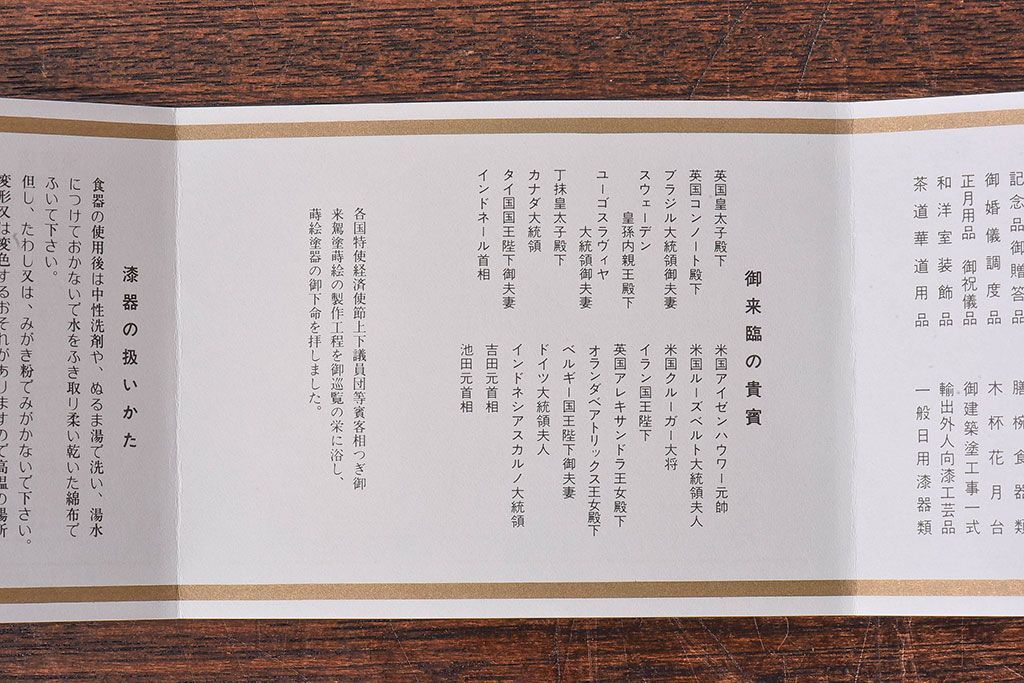 記念品御贈答品
御婚儀調度品
正月用品 御祝儀品
和洋室装飾品
茶道華道用品
膳椀食器類
木杯花月台
御建築塗工事一式
輸出外人向漆工芸品
一般日用漆器類
御来臨の貴賓
英国皇太子殿下
英国コンノート殿下
ブラジル大統領御夫妻
スウェーデン
皇孫内親王殿下
ユーゴスラヴィヤ
大統領御夫妻
丁抹皇太子殿下
カナダ大統領
タイ国国王陛下御夫妻
インドネール首相
米国アイゼンハウワー元帥
米国ルーズベルト大統領夫人
米国クルーガー大将
イラン国王陛下
英国アレキサンドラ王女殿下
オランダベアトリックス王女殿下
ベルギー国王陛下御夫妻
ドイツ大統領夫人
インドネシアスカルノ大統領
吉田元首相
池田元首相
各国特使経済使節上下議員団等賓客相つぎ御
来駕塗蒔絵の製作工程を御巡覧の栄に浴し、
蒔絵塗器の御下命を拝しました。
漆器の扱いかた
食器の使用後は中性洗剤や、ぬるま湯で洗い、湯水
につけておかないで水をふき取り柔い乾いた綿布で
ふいて下さい。
但し、たわし又は、みがき粉でみがかないで下さい。
変形又は変色するおそれがありますので高温の場所